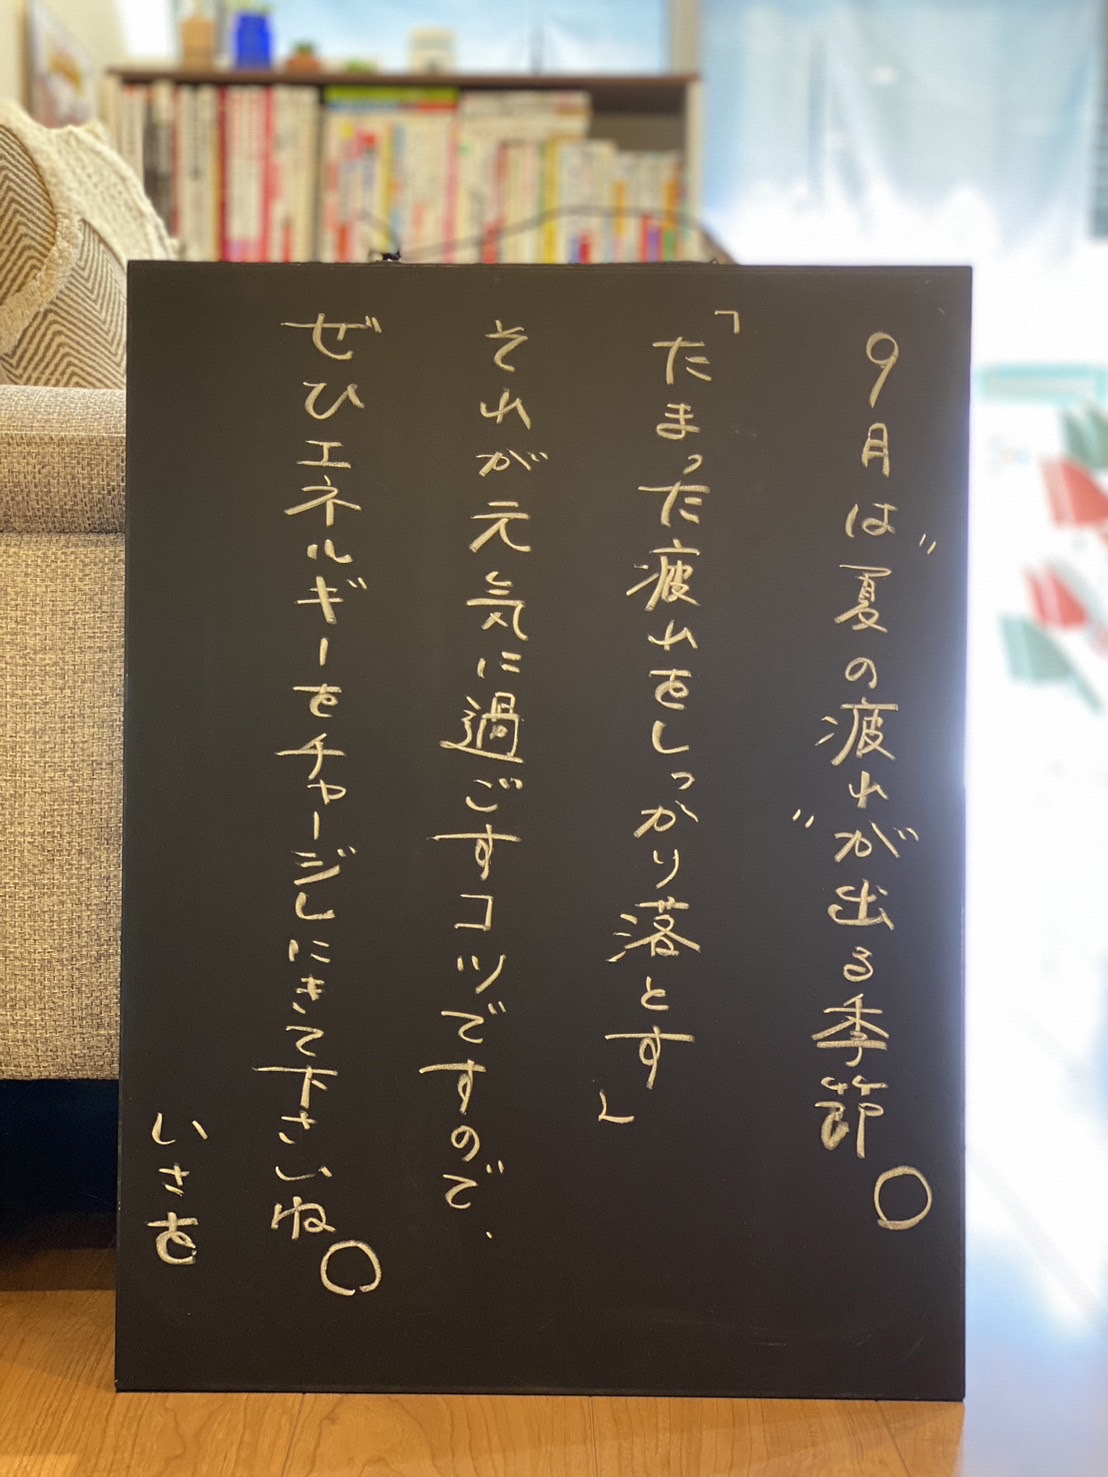 9月は"夏の疲れが"出る季節。
「たまった疲れをしっかり落とす」
それが元気に過ごすコツですので、
ぜひエネルギーをチャージしにきて下さいね。
いさを